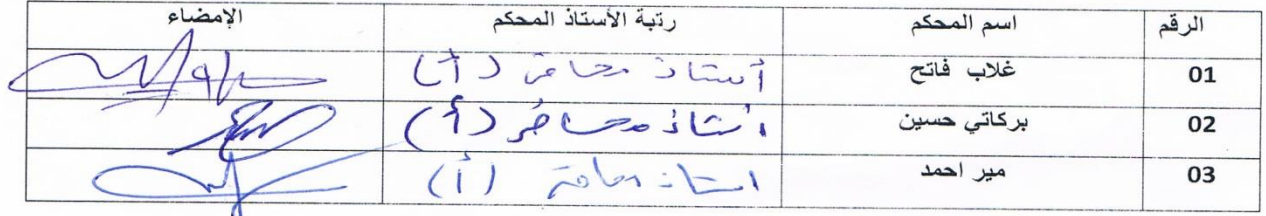 الرقم اسم المحكم رتبة الأستاذ المحكم الإمضاء
01 غلاب فاتح أستاذ محاضر (أ)
02 بركاتي حسين أستاذ محاضر (أ)
03 مير احمد استاذ محاضر (أ)